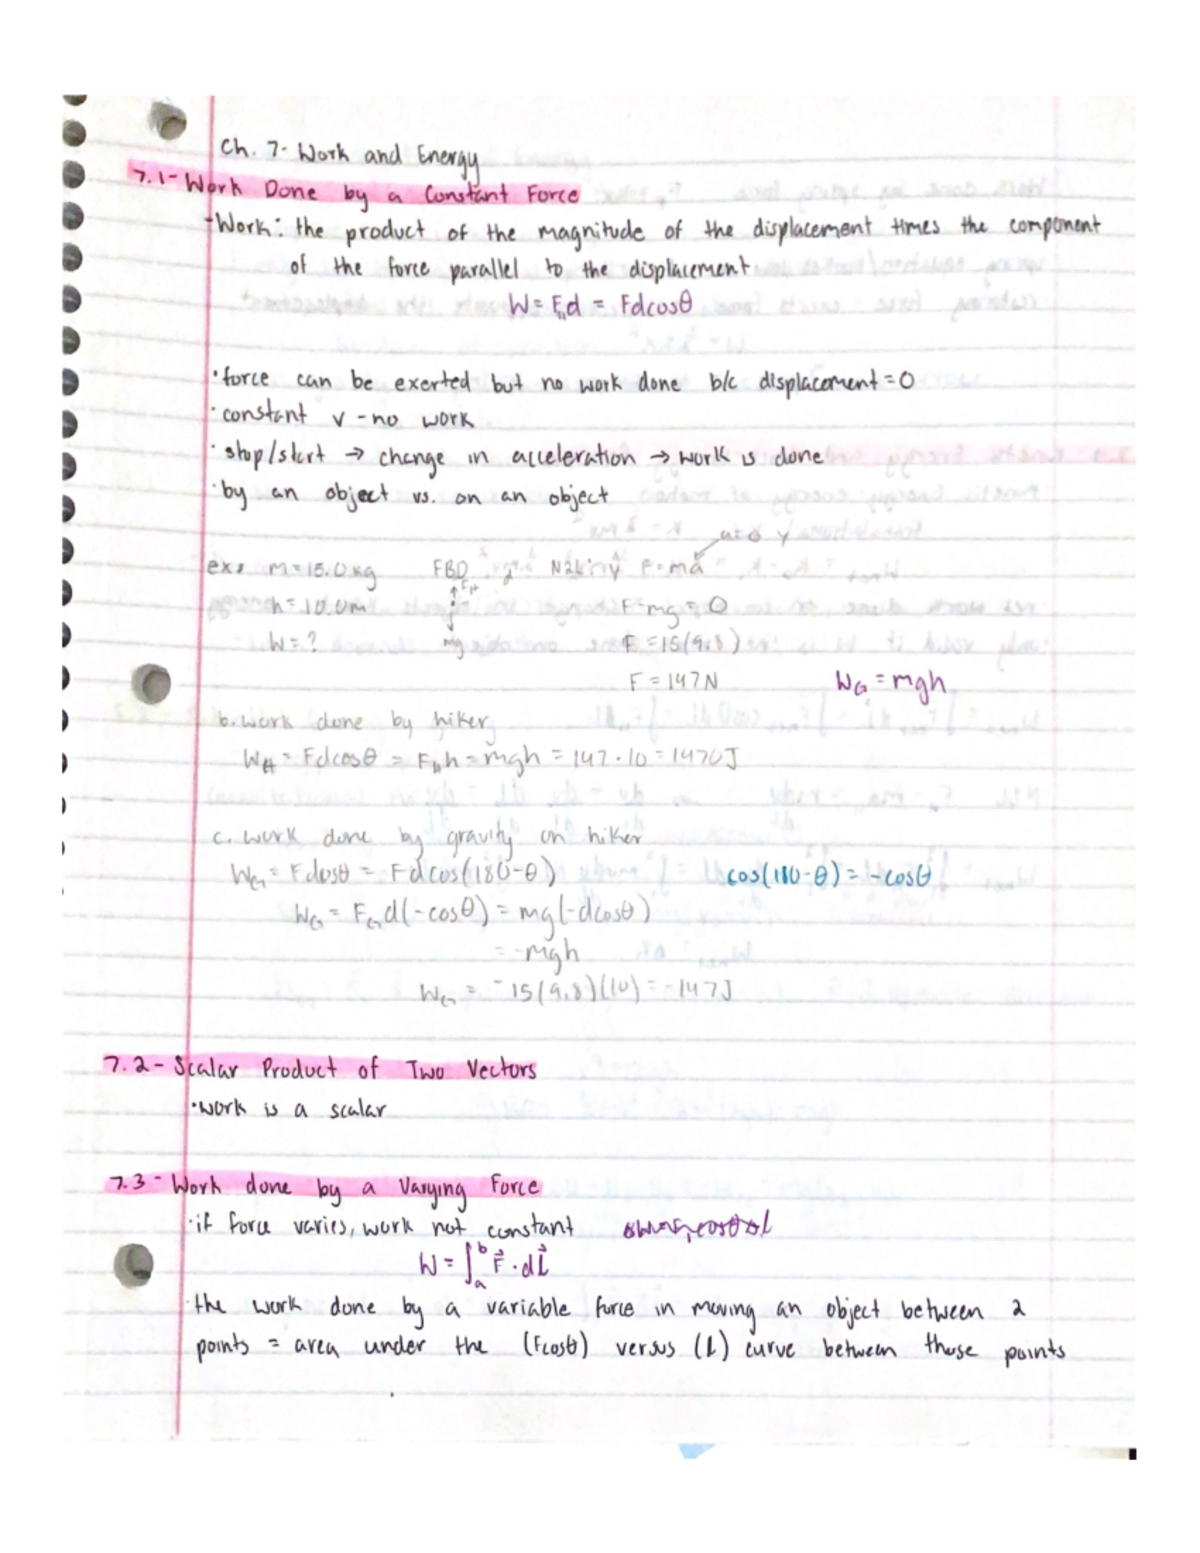 Ch. 7- Work and Energy
7.1- Work Done by a Constant Force
-Work: the product of the magnitude of the displacement times the component
of the force parallel to the displacement
W = F∥d = Fdcosθ
· force can be exerted but no work done b/c displacement = 0
· constant v - no work
· stop/start → change in acceleration → work is done
· by an object vs. on an object
ex: m = 15.0kg FBD F = ma
h = 10.0m F-mg = 0
W = ? mg F = 15(9.8)
F = 147N WG = mgh
b. work done by hiker
WH = Fdcosθ = F∥h = mgh = 147·10 = 1470J
c. work done by gravity on hiker
WG = Fdcosθ = Fdcos(180-θ) cos(180-θ) = -cosθ
WG = FGd(-cosθ) = mg(-dcosθ)
= -mgh
WG = -15(9.8)(10) = -147J
7.2- Scalar Product of Two Vectors
· work is a scalar
7.3- Work done by a Varying Force
· if force varies, work not constant
W = ∫ₐᵇ F⃗ · dl⃗
· the work done by a variable force in moving an object between 2
points = area under the (Fcosθ) versus (l) curve between those points